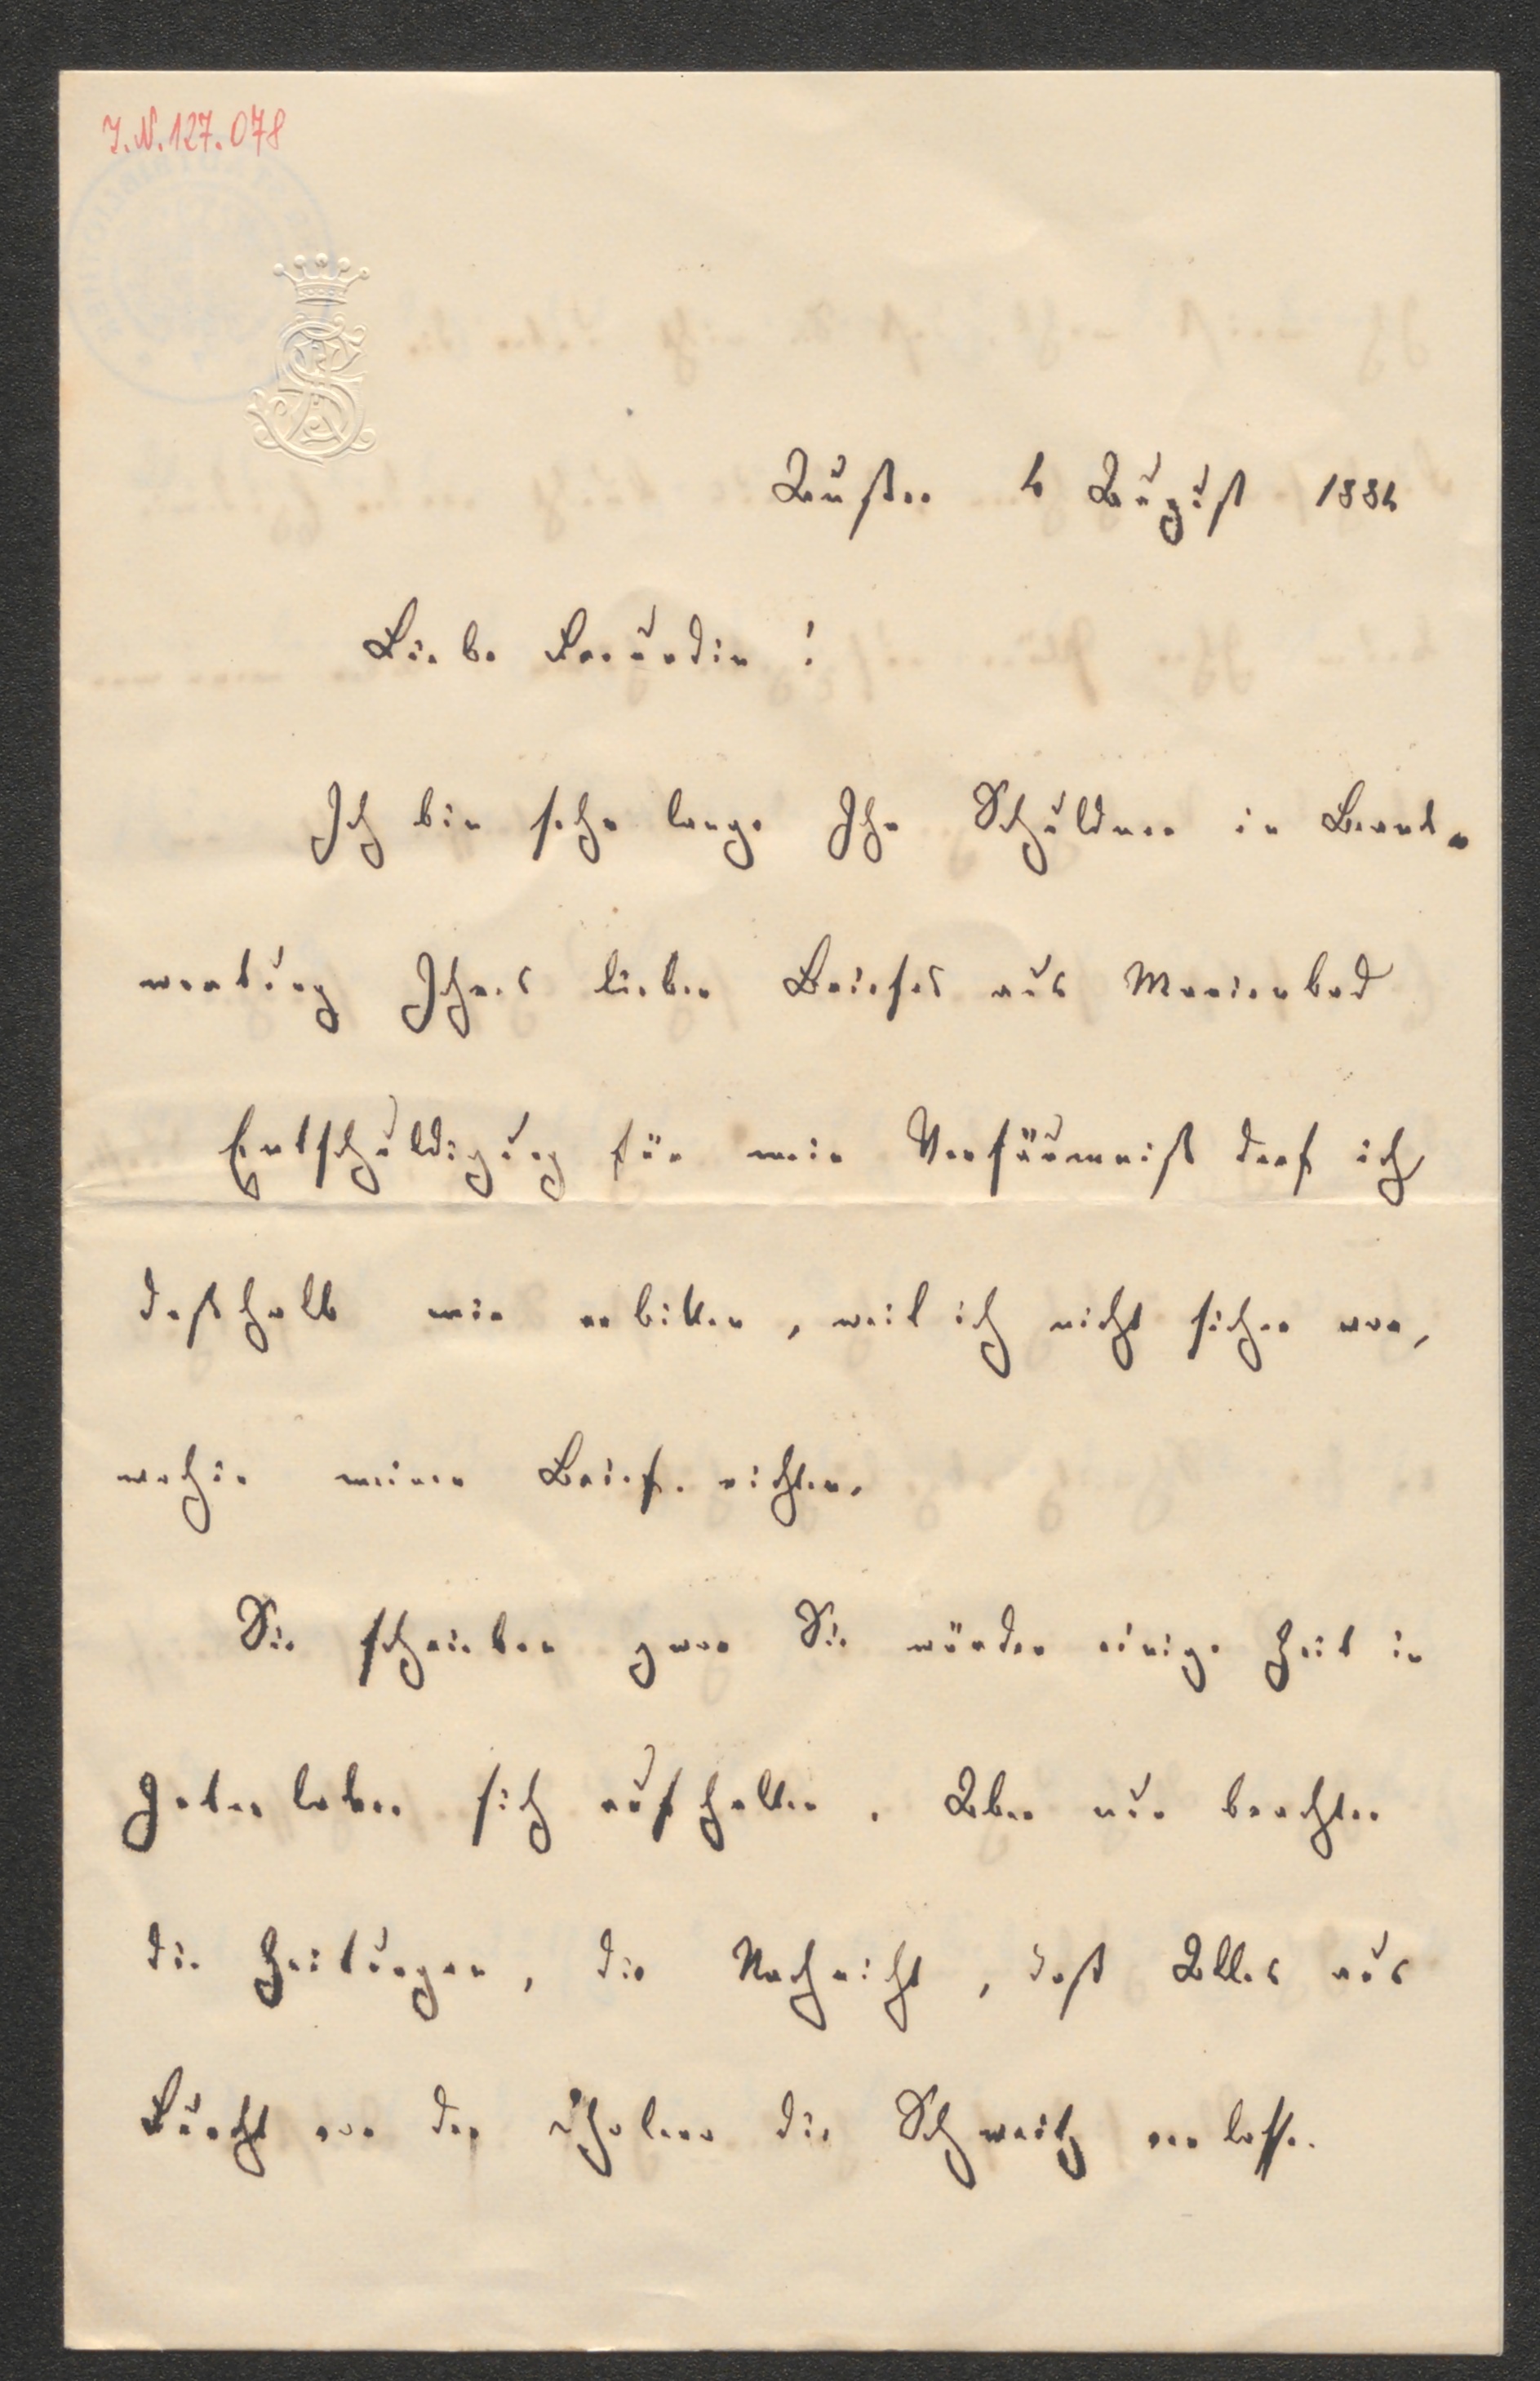 I.N. 127.078
Aussee 4 August 1884
Liebe Freundin!
Ich bin sehr lange Ihr Schuldner in Beant-
wortung Ihres lieben Briefes aus Marienbad
Entschuldigung für mein Versäumniß darf ich
deßhalb mir erbitten, weil ich nicht sicher war,
wohin meinen Brief richten.
Sie schrieben zwar Sie würden einige Zeit in
sich aufhalten. Aber nun brachten
die Zeitungen, die Nachricht, daß Alles aus
Furcht vor der Cholera die Schweitz verlasse.